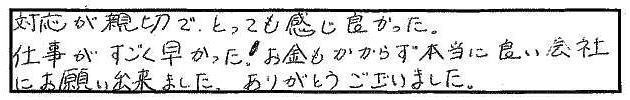 対応が親切で、とっても感じ良かった。
仕事がすごく早かった！お金もかからず本当に良い会社
にお願い出来ました。ありがとうございました。